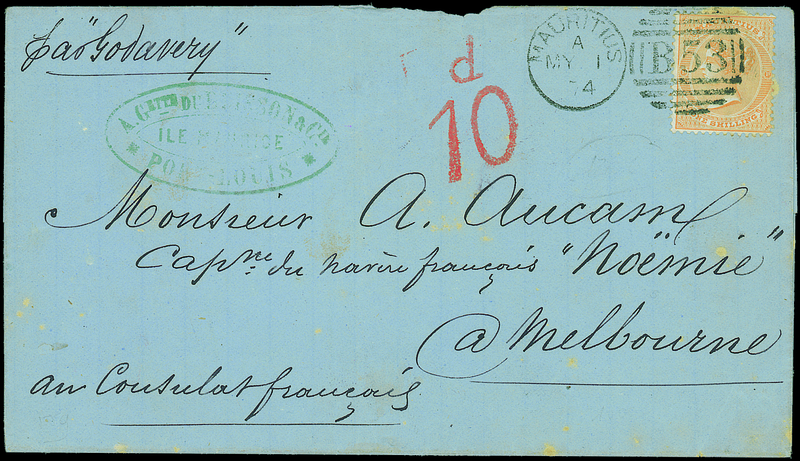 par "Godavery"
d
10
MAURITIUS
A
MY 1
74
B53
SHILLING
ILE MAURICE
PORT-LOUIS
Monsieur A. Aucam
Capne du navire français "Noëmie"
@ Melbourne
au Consulat français